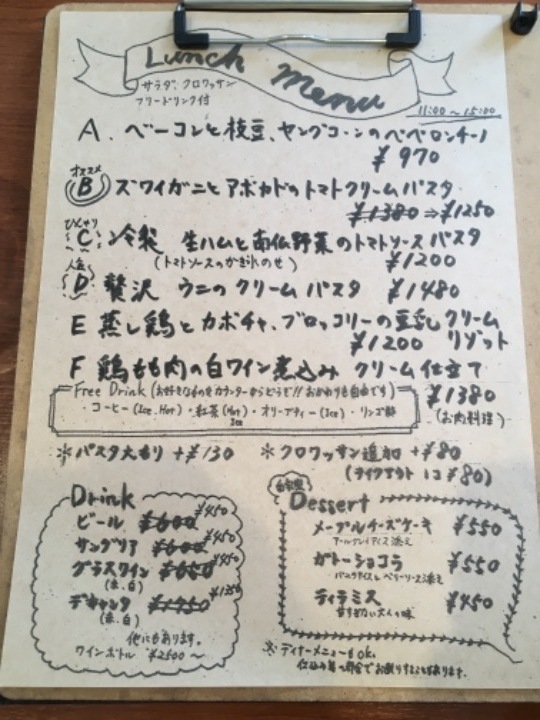 Lunch Menu
サラダ、クロワッサン
フリードリンク付
11:00～15:00
A. ベーコンと枝豆、ヤングコーンのペペロンチーノ
¥970
オススメ
B ズワイガニとアボカドのトマトクリームパスタ
¥1380⇒¥1250
ひんやり
C 冷製 生ハムと南仏野菜のトマトソースパスタ
(トマトソースのかき氷のせ) ¥1200
人気
D 贅沢 ウニのクリームパスタ ¥1480
E 蒸し鶏とカボチャ、ブロッコリーの豆乳クリーム
¥1200 リゾット
F 鶏もも肉の白ワイン煮込み クリーム仕立て
¥1380
(お肉料理)
Free Drink (お好きなものをカウンターからどうぞ!! おかわりも自由です)
・コーヒー(Ice.Hot)・紅茶(Hot)・オリーブティー(Ice)・リンゴ酢
Ice
※パスタ大もり +¥130
※クロワッサン追加 +¥80
(テイクアウト 1コ ¥80)
Drink
ビール ¥600 ¥450
サングリア ¥600 ¥450
グラスワイン ¥650 ¥450
(赤、白)
デキャンタ ¥1950 ¥1350
(赤、白)
他にもあります。
ワインボトル ¥2500～
自家製
Dessert
メープルチーズケーキ ¥550
アールグレイアイス添え
ガトーショコラ ¥550
バニラアイスとベリーソース添え
ティラミス ¥450
甘すぎない大人の味
※ディナーメニューもOK.
仕込み等の都合でお断りすることもあります。